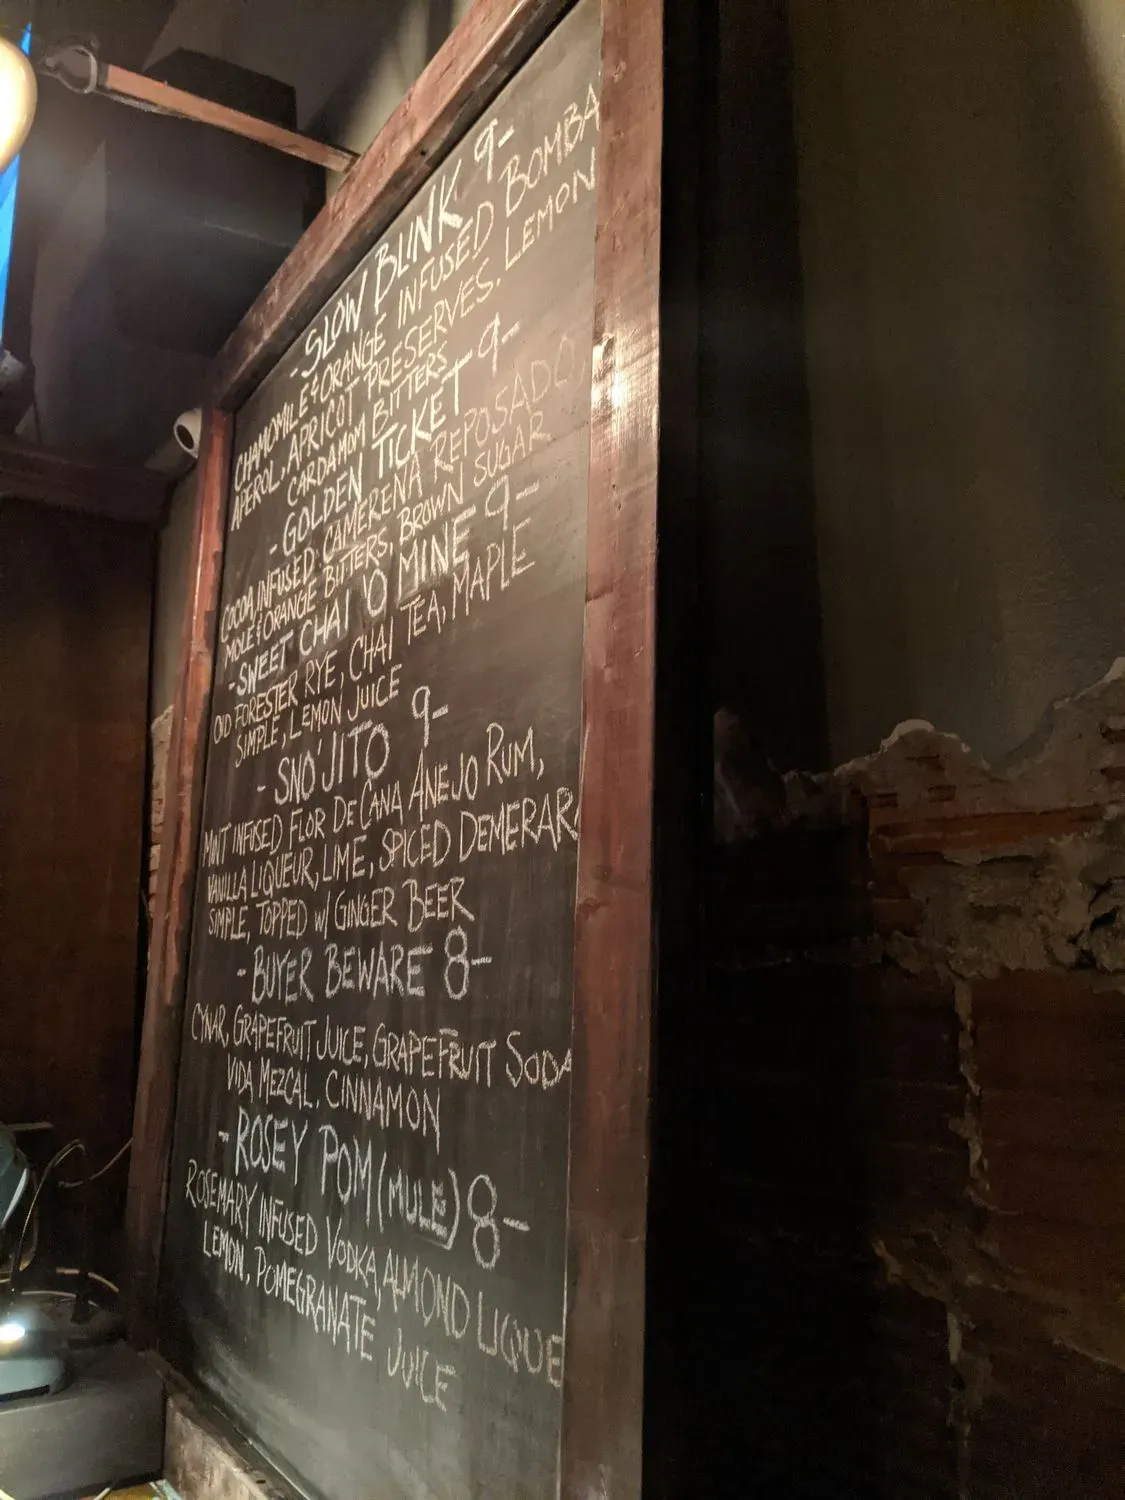 - SLOW BLINK 9-
CHAMOMILE & ORANGE INFUSED BOMBA
APEROL, APRICOT PRESERVES, LEMON
CARDAMOM BITTERS
- GOLDEN TICKET 9-
COCOA INFUSED CAMERENA REPOSADO,
MOLE & ORANGE BITTERS, BROWN SUGAR
- SWEET CHAI O' MINE 9-
OLD FORESTER RYE, CHAI TEA, MAPLE
SIMPLE, LEMON JUICE
- SNO'JITO 9-
MINT INFUSED FLOR DE CANA ANEJO RUM,
VANILLA LIQUEUR, LIME, SPICED DEMERARA
SIMPLE, TOPPED w/ GINGER BEER
- BUYER BEWARE 8-
CYNAR, GRAPEFRUIT JUICE, GRAPEFRUIT SODA
VIDA MEZCAL, CINNAMON
- ROSEY POM (MULE) 8-
ROSEMARY INFUSED VODKA, ALMOND LIQUE
LEMON, POMEGRANATE JUICE